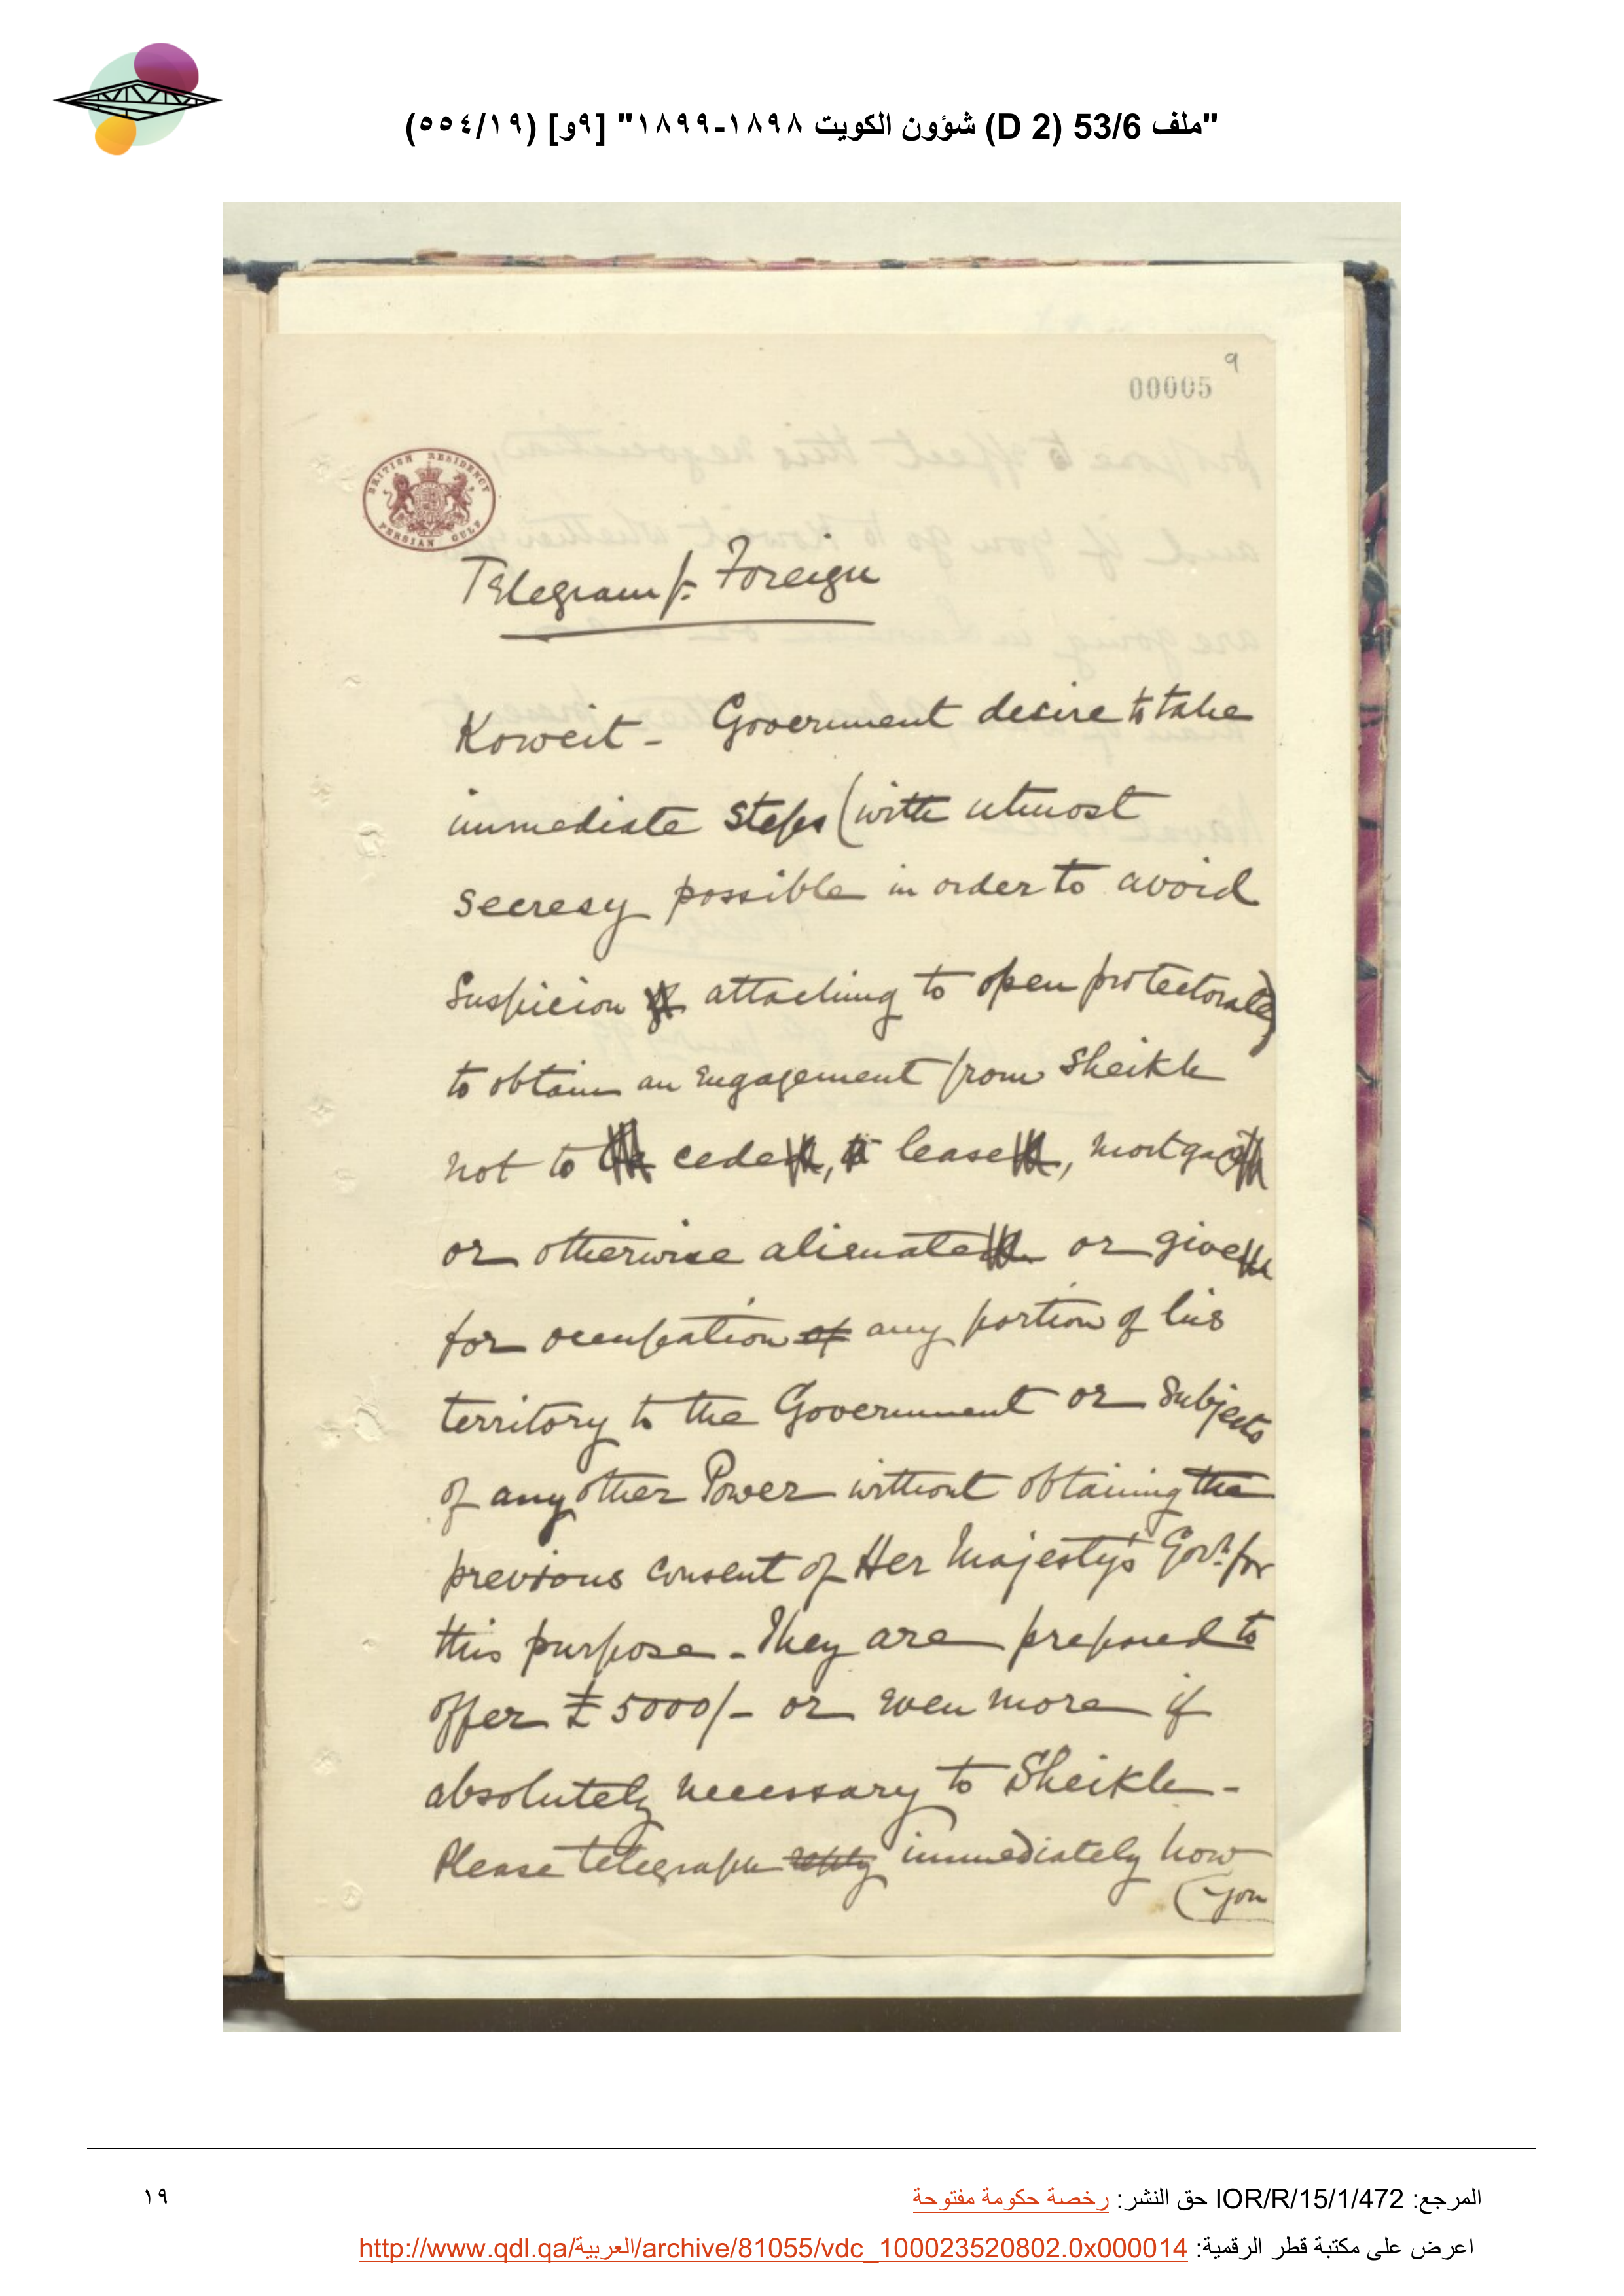 "ملف 53/6 (D 2) شؤون الكويت ١٨٩٨-١٨٩٩" [٩و] (٥٥٤/١٩)
9
00005
BRITISH RESIDENCY
PERSIAN GULF
Telegram f. Foreign
Koweit - Government desire to take
immediate steps (with utmost
secresy possible in order to avoid
suspicion attaching to open protectorate)
to obtain an engagement from Sheikh
not to cede, lease, mortgage
or otherwise alienate or give
for occupation of any portion of his
territory to the Government or subjects
of any other Power without obtaining the
previous consent of Her Majesty's Govt. for
this purpose - They are prepared to
offer £5000/- or even more if
absolutely necessary to Sheikh -
Please telegraph reply immediately how
(you
المرجع: IOR/R/15/1/472 حق النشر: رخصة حكومة مفتوحة
١٩
اعرض على مكتبة قطر الرقمية: http://www.qdl.qa/العربية/archive/81055/vdc_100023520802.0x000014